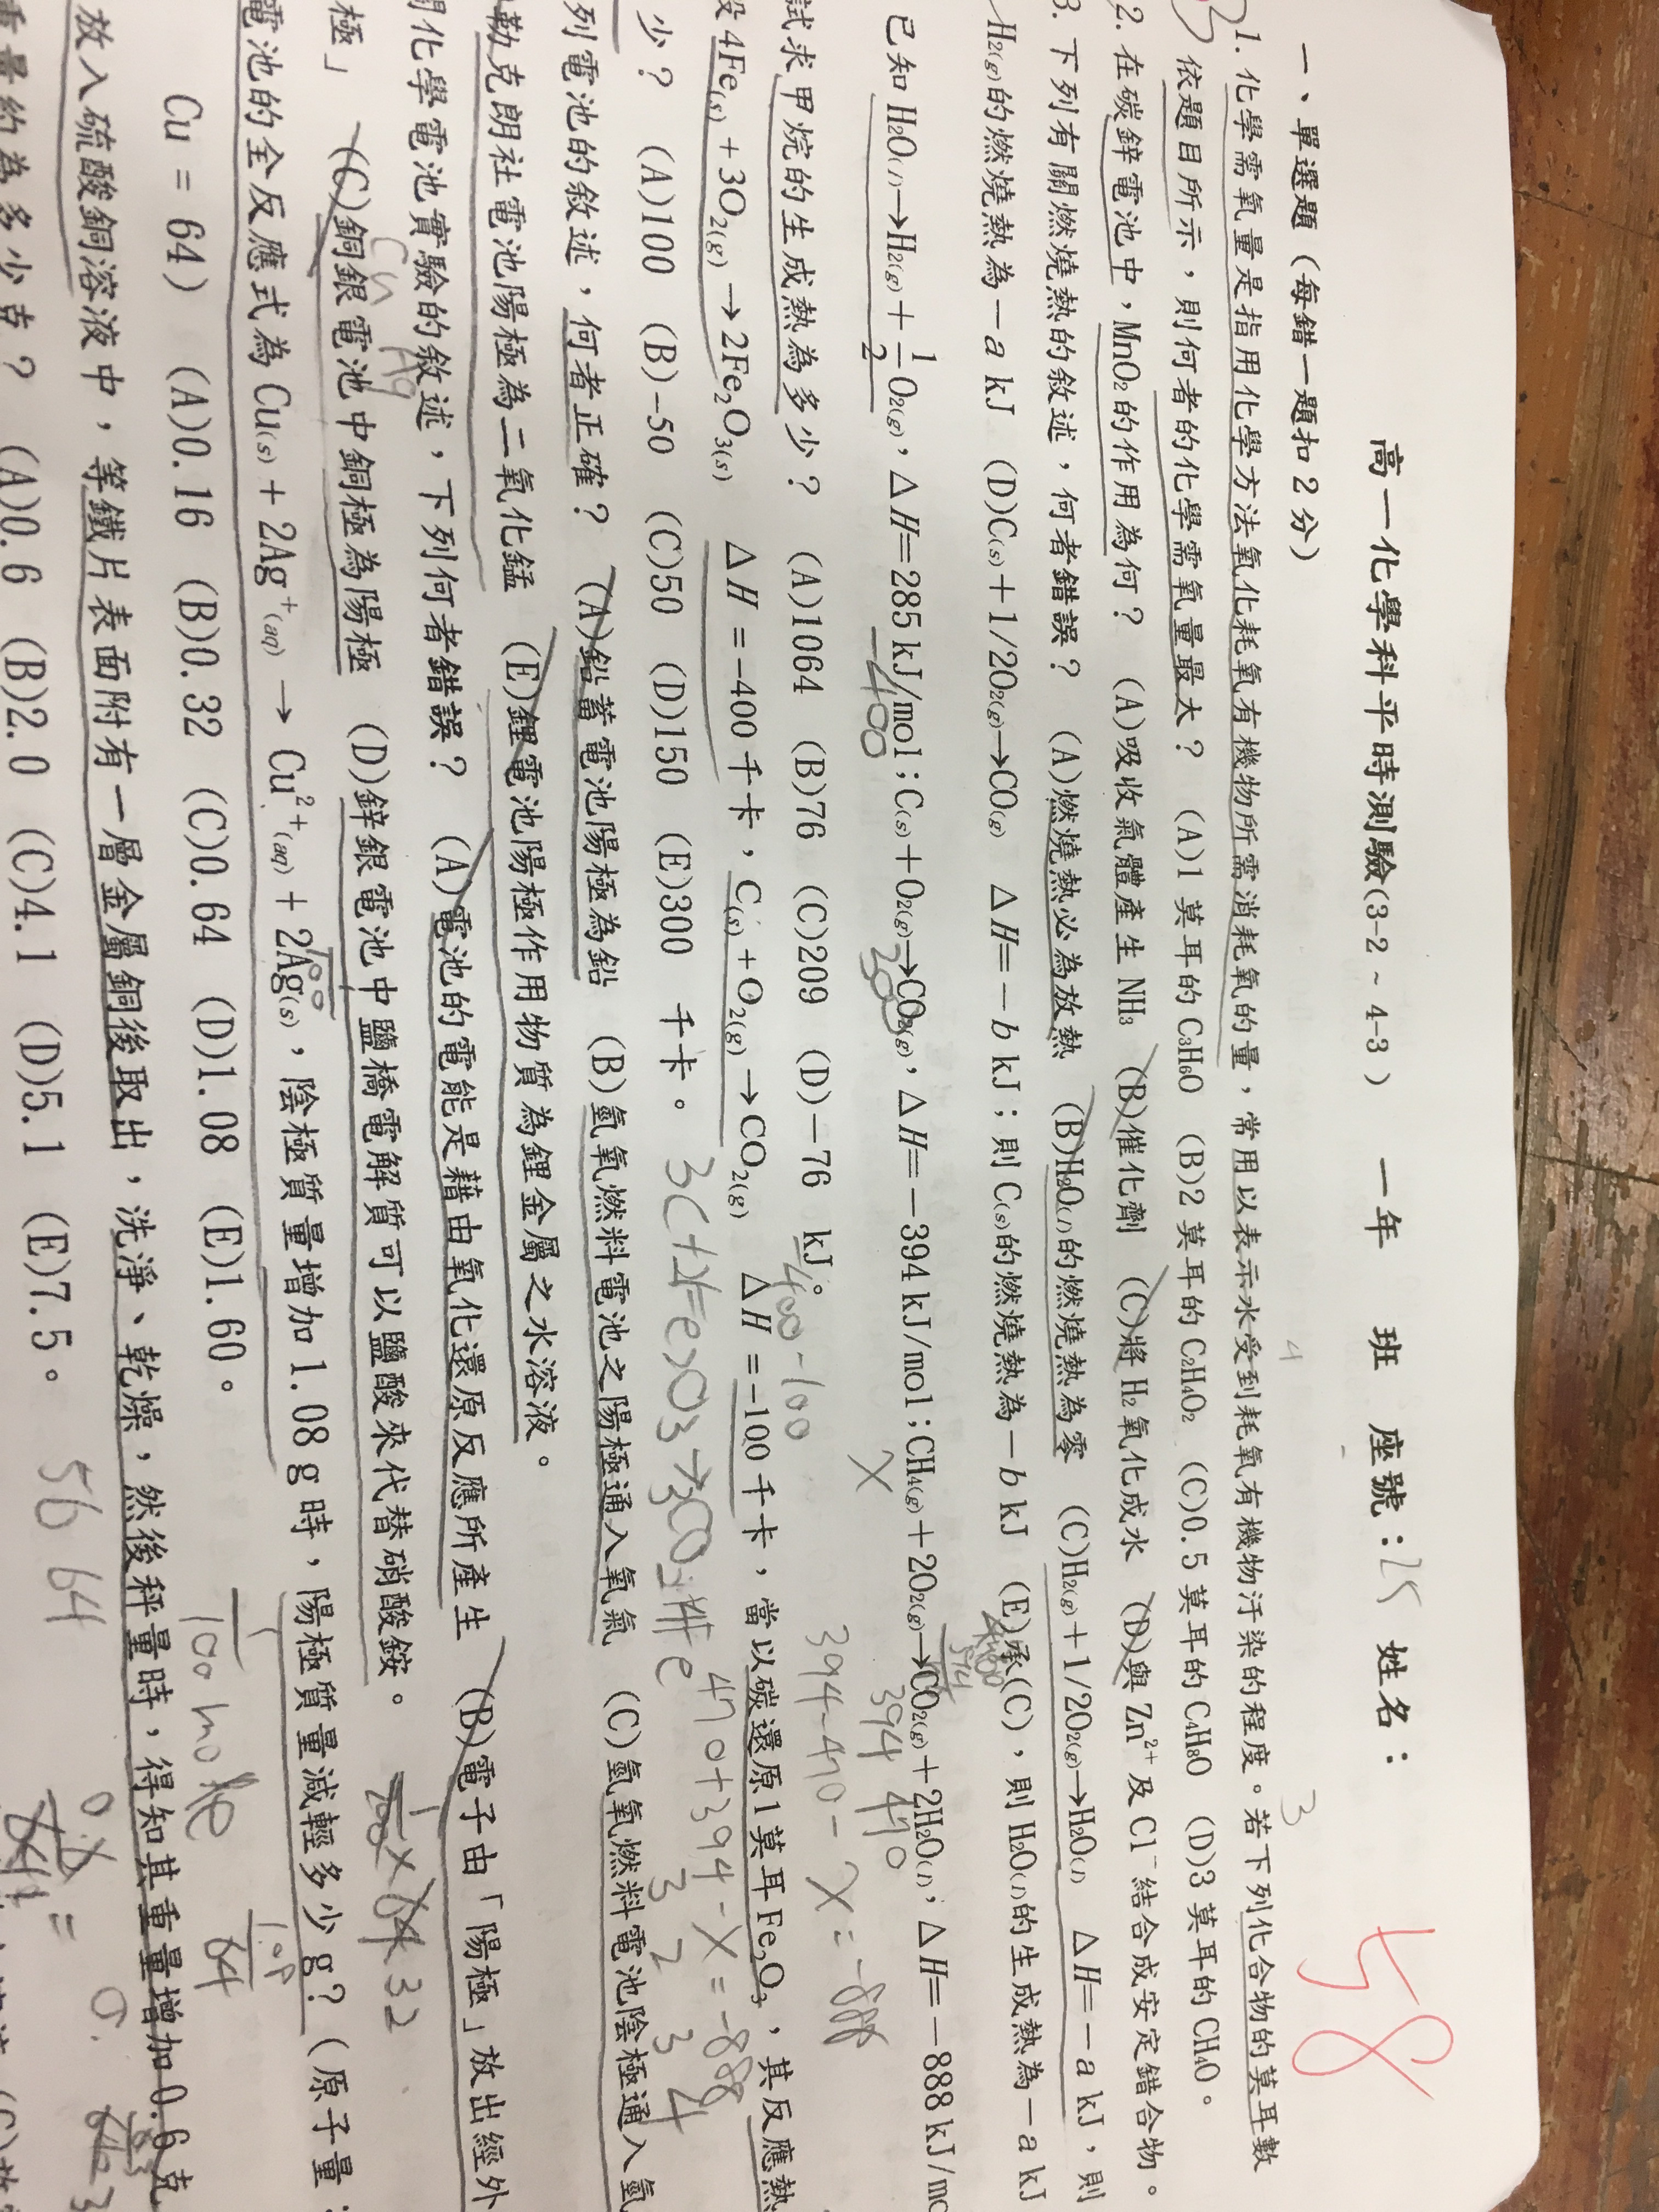 高一化學科平時測驗(3-2 ~ 4-3) 一年 班 座號：25 姓名：
58
一、單選題（每錯一題扣 2 分）
1. 化學需氧量是指用化學方法氧化耗氧有機物所需消耗氧的量，常用以表示水受到耗氧有機物汙染的程度。若下列化合物的莫耳數
依題目所示，則何者的化學需氧量最大？ (A)1 莫耳的 C3H6O (B)2 莫耳的 C2H4O2 (C)0.5 莫耳的 C4H8O (D)3 莫耳的 CH4O。
2. 在碳鋅電池中，MnO2 的作用為何？ (A)吸收氣體產生 NH3 (B)催化劑 (C)將 H2 氧化成水 (D)與 Zn2+及 Cl-結合成安定錯合物。
3. 下列有關燃燒熱的敘述，何者錯誤？ (A)燃燒熱必為放熱 (B)H2O(l)的燃燒熱為零 (C)H2(g)＋1/2O2(g)→H2O(l) ΔH=－a kJ，則
H2(g)的燃燒熱為－a kJ (D)C(s)＋1/2O2(g)→CO(g) ΔH=－b kJ；則 C(s)的燃燒熱為－b kJ (E)承(C)，則 H2O(l)的生成熱為－a kJ
已知 H2O(l)→H2(g)＋1/2O2(g)，ΔH=285 kJ/mol；C(s)＋O2(g)→CO2(g)，ΔH=－394 kJ/mol；CH4(g)＋2O2(g)→CO2(g)＋2H2O(l)，ΔH=－888 kJ/mo
-400
394 490
試求甲烷的生成熱為多少？ (A)1064 (B)76 (C)209 (D)－76 kJ。
394-490-X=-888
4Fe(s)＋3O2(g)→2Fe2O3(s) ΔH＝-400 千卡，C(s)＋O2(g)→CO2(g) ΔH＝-100 千卡，當以碳還原 1 莫耳 Fe2O3，其反應熱
400-100
少？ (A)100 (B)-50 (C)50 (D)150 (E)300 千卡。
3C+2Fe2O3→3CO2+4Fe
列電池的敘述，何者正確？ (A)鉛蓄電池陽極為鉛 (B)氫氧燃料電池之陽極通入氧氣 (C)氫氧燃料電池陰極通入氫
勒克朗社電池陽極為二氧化錳 (E)鋰電池陽極作用物質為鋰金屬之水溶液。
化學電池實驗的敘述，下列何者錯誤？ (A)電池的電能是藉由氧化還原反應所產生 (B)電子由「陽極」放出經外
Cu Ag
極」 (C)銅銀電池中銅極為陽極 (D)鋅銀電池中鹽橋電解質可以鹽酸來代替硝酸銨。
電池的全反應式為 Cu(s)＋2Ag+(aq) → Cu2+(aq)＋2Ag(s)，陰極質量增加 1.08 g 時，陽極質量減輕多少 g？（原子量：
Cu = 64) (A)0.16 (B)0.32 (C)0.64 (D)1.08 (E)1.60。
放入硫酸銅溶液中，等鐵片表面附有一層金屬銅後取出，洗淨、乾燥，然後秤量時，得知其重量增加 0.6 克
重量約為多少克？ (A)0.6 (B)2.0 (C)4.1 (D)5.1 (E)7.5。
56 64